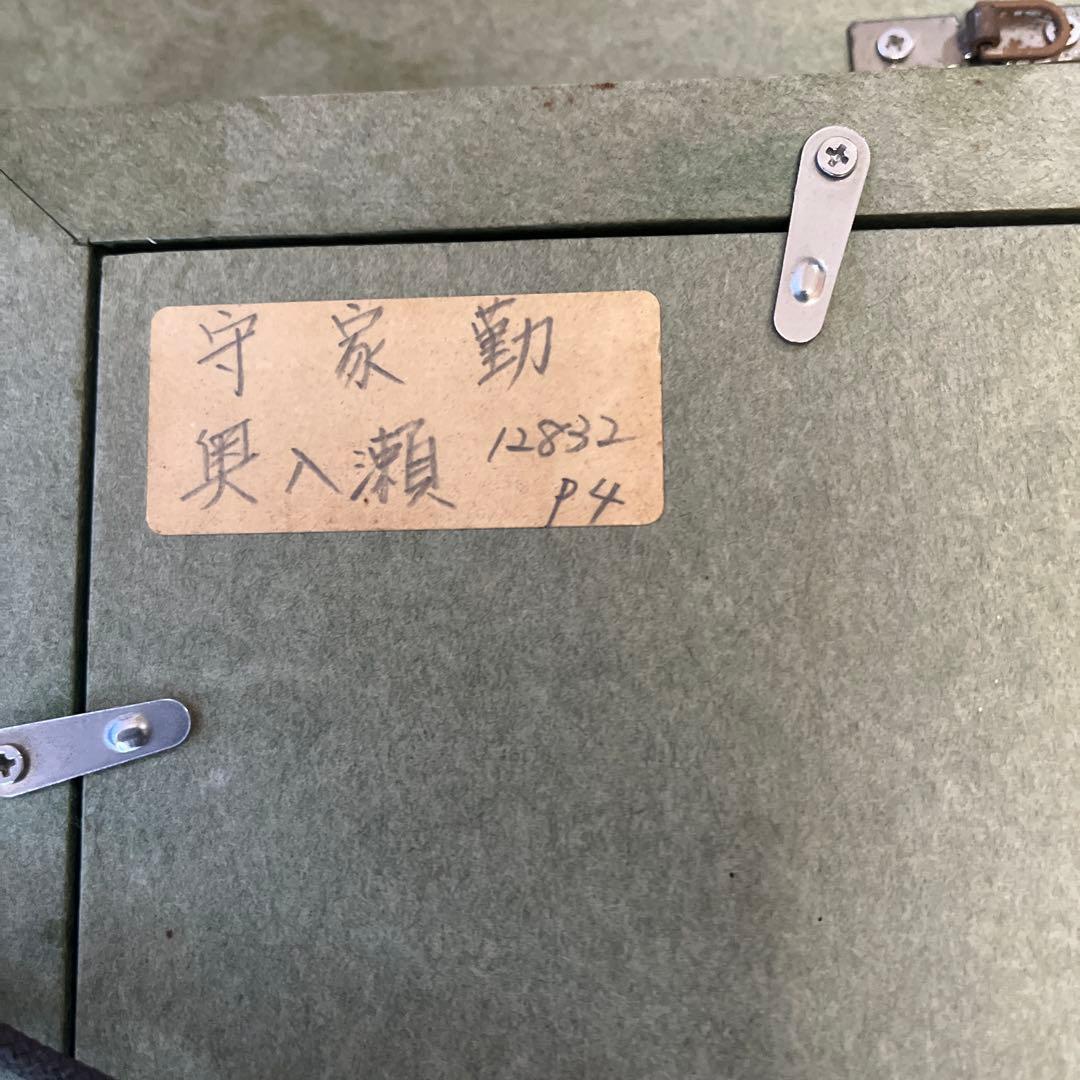 守家勤
奥入瀬 12832
P4